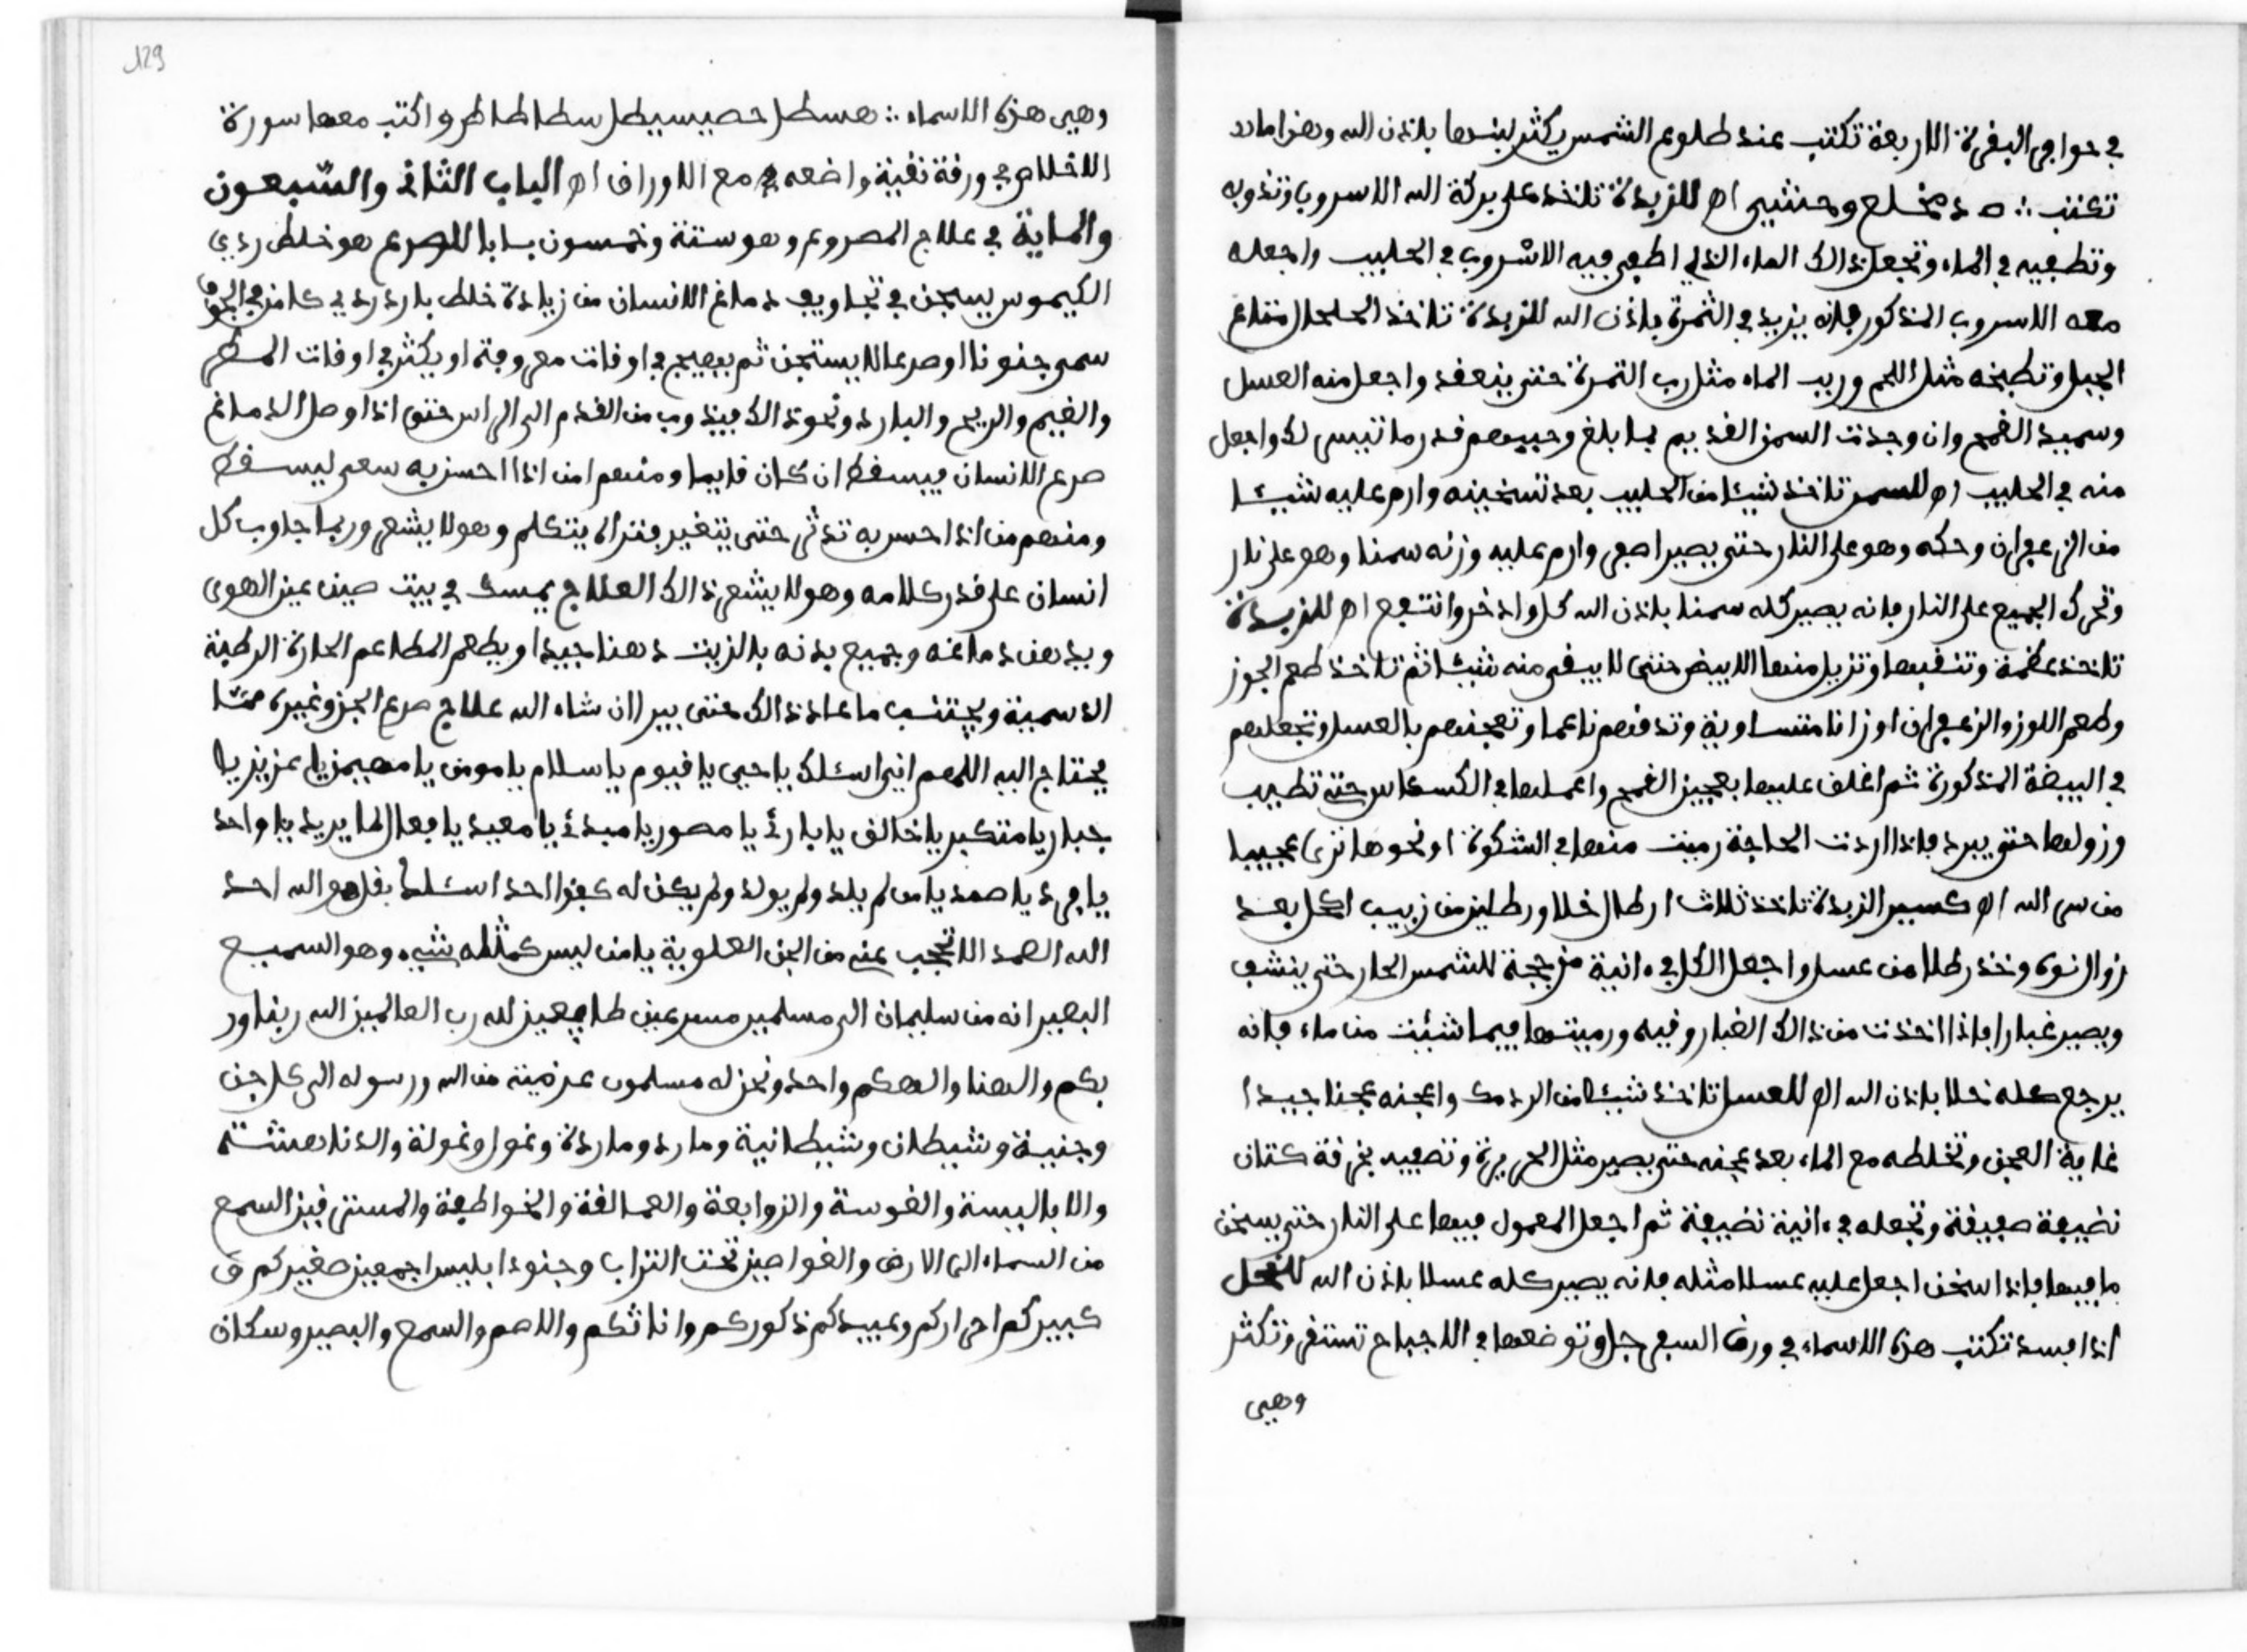 في حوافر البقرة الاربعة تكتب عند طلوع الشمس يكثر لبنها باذن الله وهذا ما
تكتب اه للزبدة تاخذ على بركة الله الاسروب وتذوبه
وتطفيه في الماء وتجعل ذالك الماء الذي اطفي فيه الاشروب في الحليب واجعله
معه الاسروب المذكور فانه يزيد في الثمرة باذن الله للزبدة تاخذ الحلحال متاع
الجبل وتطبخه مثل اللحم وريب الماء مثل رب التمرة حتى ينعقد واجعل منه العسل
وسميد القمح وان وجدت السمن القديم بها بلغ قدر ما تيسر لك واجعل
منه في الحليب اه للسمن تاخذ شيئا من الحليب بعد تسخينه وارم عليه شيئا
من الزعفران وحكه وهو على النار حتى يصير اصفر وارم عليه وزنه سمنا وهو على نار
وتحرك الجميع على النار فانه يصير كله سمنا باذن الله كل واذخر وانتفع اه للزبدة
تاخذ عظمة وتنقبها وتزيل منها الابيض حتى لا يبقى منه شيئا ثم تاخذ طعم الجوز
وطعم اللوز والزعفران اوزانا متساوية وتدقهم ناعما وتعجنهم بالعسل وتجعلهم
في البيضة المذكورة ثم اغلف عليها بعجين القمح واعملها في الكسكاس حتى تطيب
وزولها حتى يبرد فاذا اردت الحاجة رميت منها في الشكوة او نحوها ترى عجيبا
من سر الله اه كسير الزبدة تاخذ ثلاث ارطال خلا ورطلين من زبيب اكحل بعد
زوال نوه وخذ رطلا من عسل واجعل الكل في ءانية مزججة للشمس الحار حتى ينشف
ويصير غبارا فاذا اخذت من ذالك الغبار وقيه ورميتها فيما شئت من ماء فانه
يرجع كله خلا باذن الله اه للعسل تاخذ شيئا من الردمك واعجنه عجنا جيدا
غاية العجن وتخلطه مع الماء بعد عجنه حتى يصير مثل الحريرة وتصفيه بخرقة كتان
نضيفة صفيقة وتجعله في ءانية نضيفة ثم اجعل المعمول فيها على النار حتى يسخن
ما فيها فاذا سخن اجعل عليه عسلا مثله فانه يصير كله عسلا باذن الله للنحل
اذا فسد تكتب هذه الاسماء في ورق السفرجل وتوضعها في الاجباح تستقر وتكثر
وهيى
129
وهيى هذه الاسماء واكتب معها سورة
الاخلاص في ورقة نقية واضعه مع الاوراق اه الباب الثاني والسبعون
والماية في علاج المصروع وهو ستة وخمسون بابا للصرع هو خلط ردي
الكيموس يسجن في تجاويف دماغ الانسان من زيادة خلط بارد ردي كامن في الجوف
سمى جنونا او صرعا لا يستجن ثم يهيج في اوقات معروفة او يكثر في اوقات المطر
والغيم والريح والبارد ونحو ذالك فيذوب من القدم الى الراس حتى اذا وصل الدماغ
صرع الانسان فيسقط ان كان قايما ومنهم من اذا احس به سعى ليسقط
ومنهم من اذا احس به تدثر حتى يتغير فتراه يتكلم وهو لا يشعر وربما جاوب كل
انسان على قدر كلامه وهو لا يشعر ذالك العلاج يمسك في بيت صين عن الهوى
ويدهن دماغه وجميع بدنه بالزيت دهنا جيدا ويطعم المطاعم الحارة الرطبة
الدسمية ويجتنب ما عاد ذالك حتى يبرا ان شاء الله علاج صرع الجن وغيره مما
يحتاج اليه اللهم اني اسئلك ياحيى ياقيوم ياسلام يامومن يامهيمن ياعزيز يا
جبار يامتكبر ياخالف يابارئ يامصور يامبدئ يامعيد يافعال لما يريد ياواحد
يافرد ياصمد يامن لم يلد ولم يولد ولم يكن له كفوا احد اسئلك بقل هو الله احد
الله الصمد الا تحجب عنه من الجن العلوية يامن ليس كمثله شيء وهو السميع
البصير انه من سليمان الى مسلمين مسرعين طايعين لله رب العالمين الله ربنا ور
بكم والهنا والهكم واحد ونحن له مسلمون عزيمة من الله ورسوله الى كل جن
وجنية وشيطان وشيطانية ومارد وماردة وغول وغولة والدناهشة
والابالسة والغوسة والزوابعة والعمالقة والخواطفة والمسترقين السمع
من السماء الى الارض والغواصين تحت التراب وجنود ابليس اجمعين صغيركم و
كبيركم احراركم وعبيدكم ذكوركم واناثكم والاصم والسمع والبصير وسكان